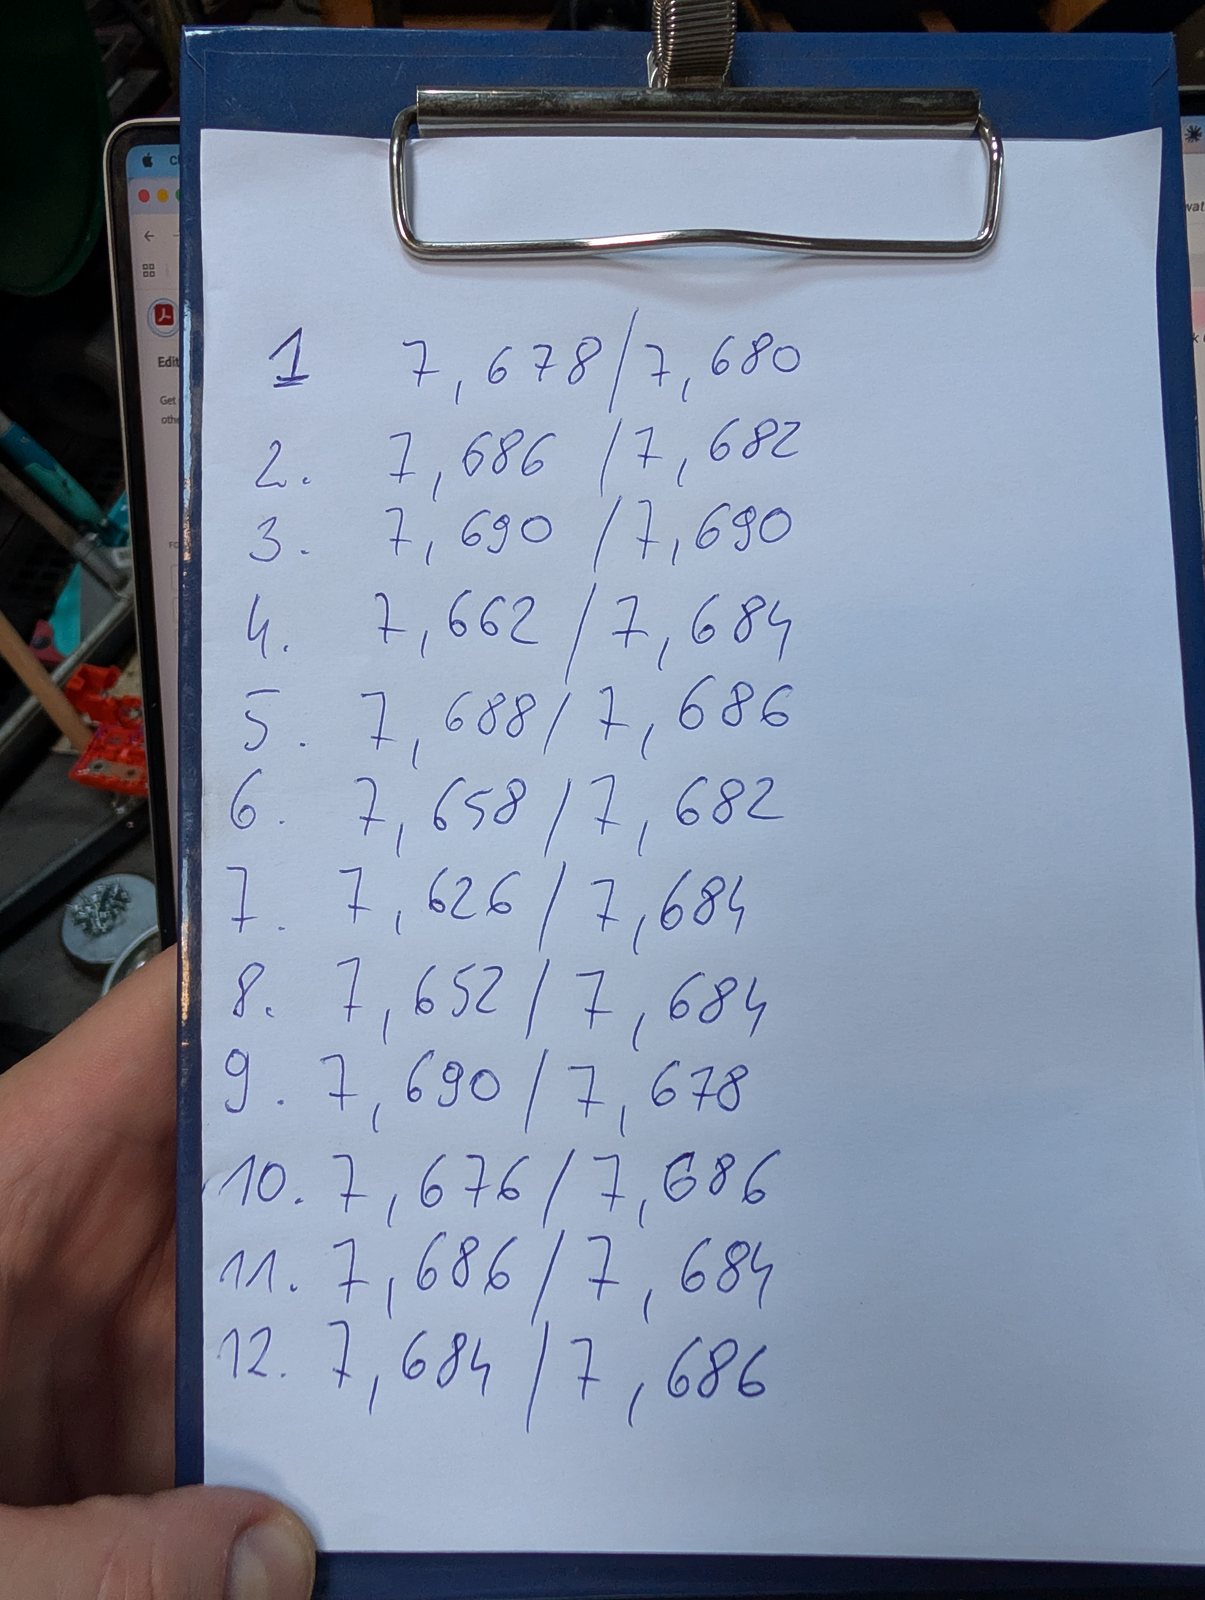 1 7,678/7,680
2. 7,686 /7,682
3. 7,690 /7,690
4. 7,662 /7,684
5. 7,688/7,686
6. 7,658 /7,682
7. 7,626 /7,684
8. 7,652 /7,684
9. 7,690 /7,678
10. 7,676 /7,686
11. 7,686 /7,684
12. 7,684 /7,686
Edit
Get